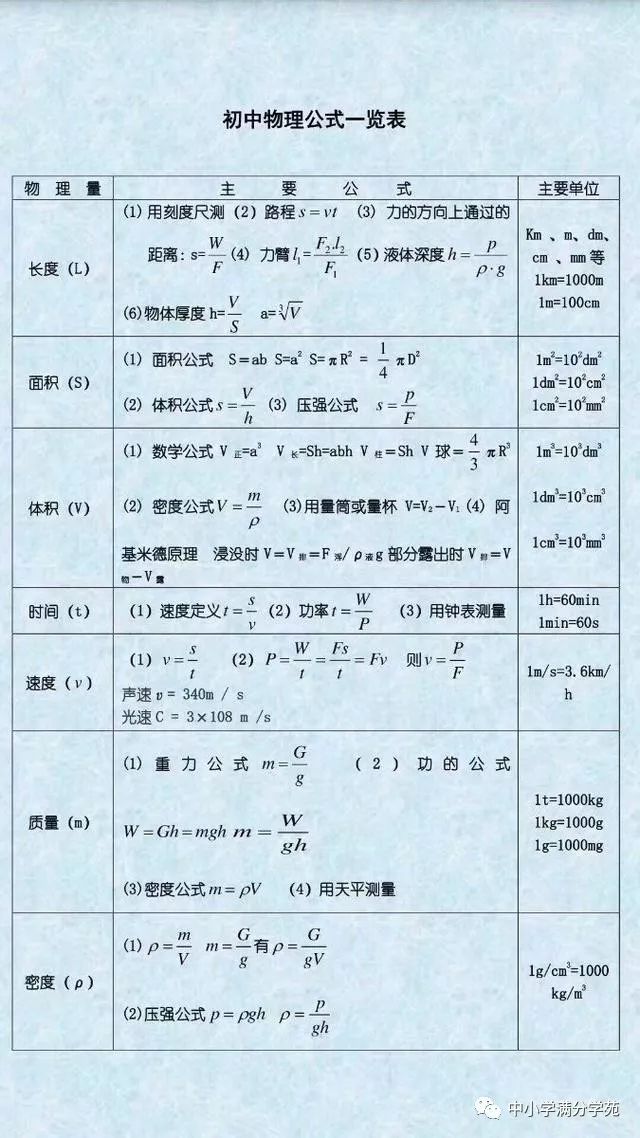 初中物理公式一览表
物 理 量 主 要 公 式 主要单位
长度（L）
(1) 用刻度尺测（2）路程 s = vt （3）力的方向上通过的
距离: s= W/F (4) 力臂 l₁= F₂.l₂/F₁ (5) 液体深度 h = p/ρ·g
(6)物体厚度 h= V/S a= ∛V
Km 、m、dm、
cm 、mm 等
1km=1000m
1m=100cm
面积（S）
(1) 面积公式 S＝ab S=a² S=πR² = 1/4 πD²
(2) 体积公式 s = V/h (3) 压强公式 s = p/F
1m²=10²dm²
1dm²=10²cm²
1cm²=10²mm²
体积（V）
(1) 数学公式 V正=a³ V长=Sh=abh V柱＝Sh V球＝ 4/3 πR³
(2) 密度公式 V = m/ρ (3)用量筒或量杯 V=V₂－V₁ (4) 阿
基米德原理 浸没时 V＝V排＝F浮/ρ液g 部分露出时 V排＝V
物－V露
1m³=10³dm³
1dm³=10³cm³
1cm³=10³mm³
时间（t）
（1）速度定义 t = s/v （2）功率 t = W/P （3）用钟表测量
1h=60min
1min=60s
速度（v）
（1） v = s/t （2） P = W/t = Fs/t = Fv 则 v = P/F
声速 υ= 340m / s
光速 C = 3×108 m /s
1m/s=3.6km/
h
质量（m）
(1) 重力公式 m = G/g （2）功的公式
W = Gh = mgh m = W/gh
(3)密度公式 m = ρV （4）用天平测量
1t=1000kg
1kg=1000g
1g=1000mg
密度（ρ）
(1) ρ = m/V m = G/g 有 ρ = G/gV
(2)压强公式 p = ρgh ρ = p/gh
1g/cm³=1000
kg/m³
中小学满分学苑